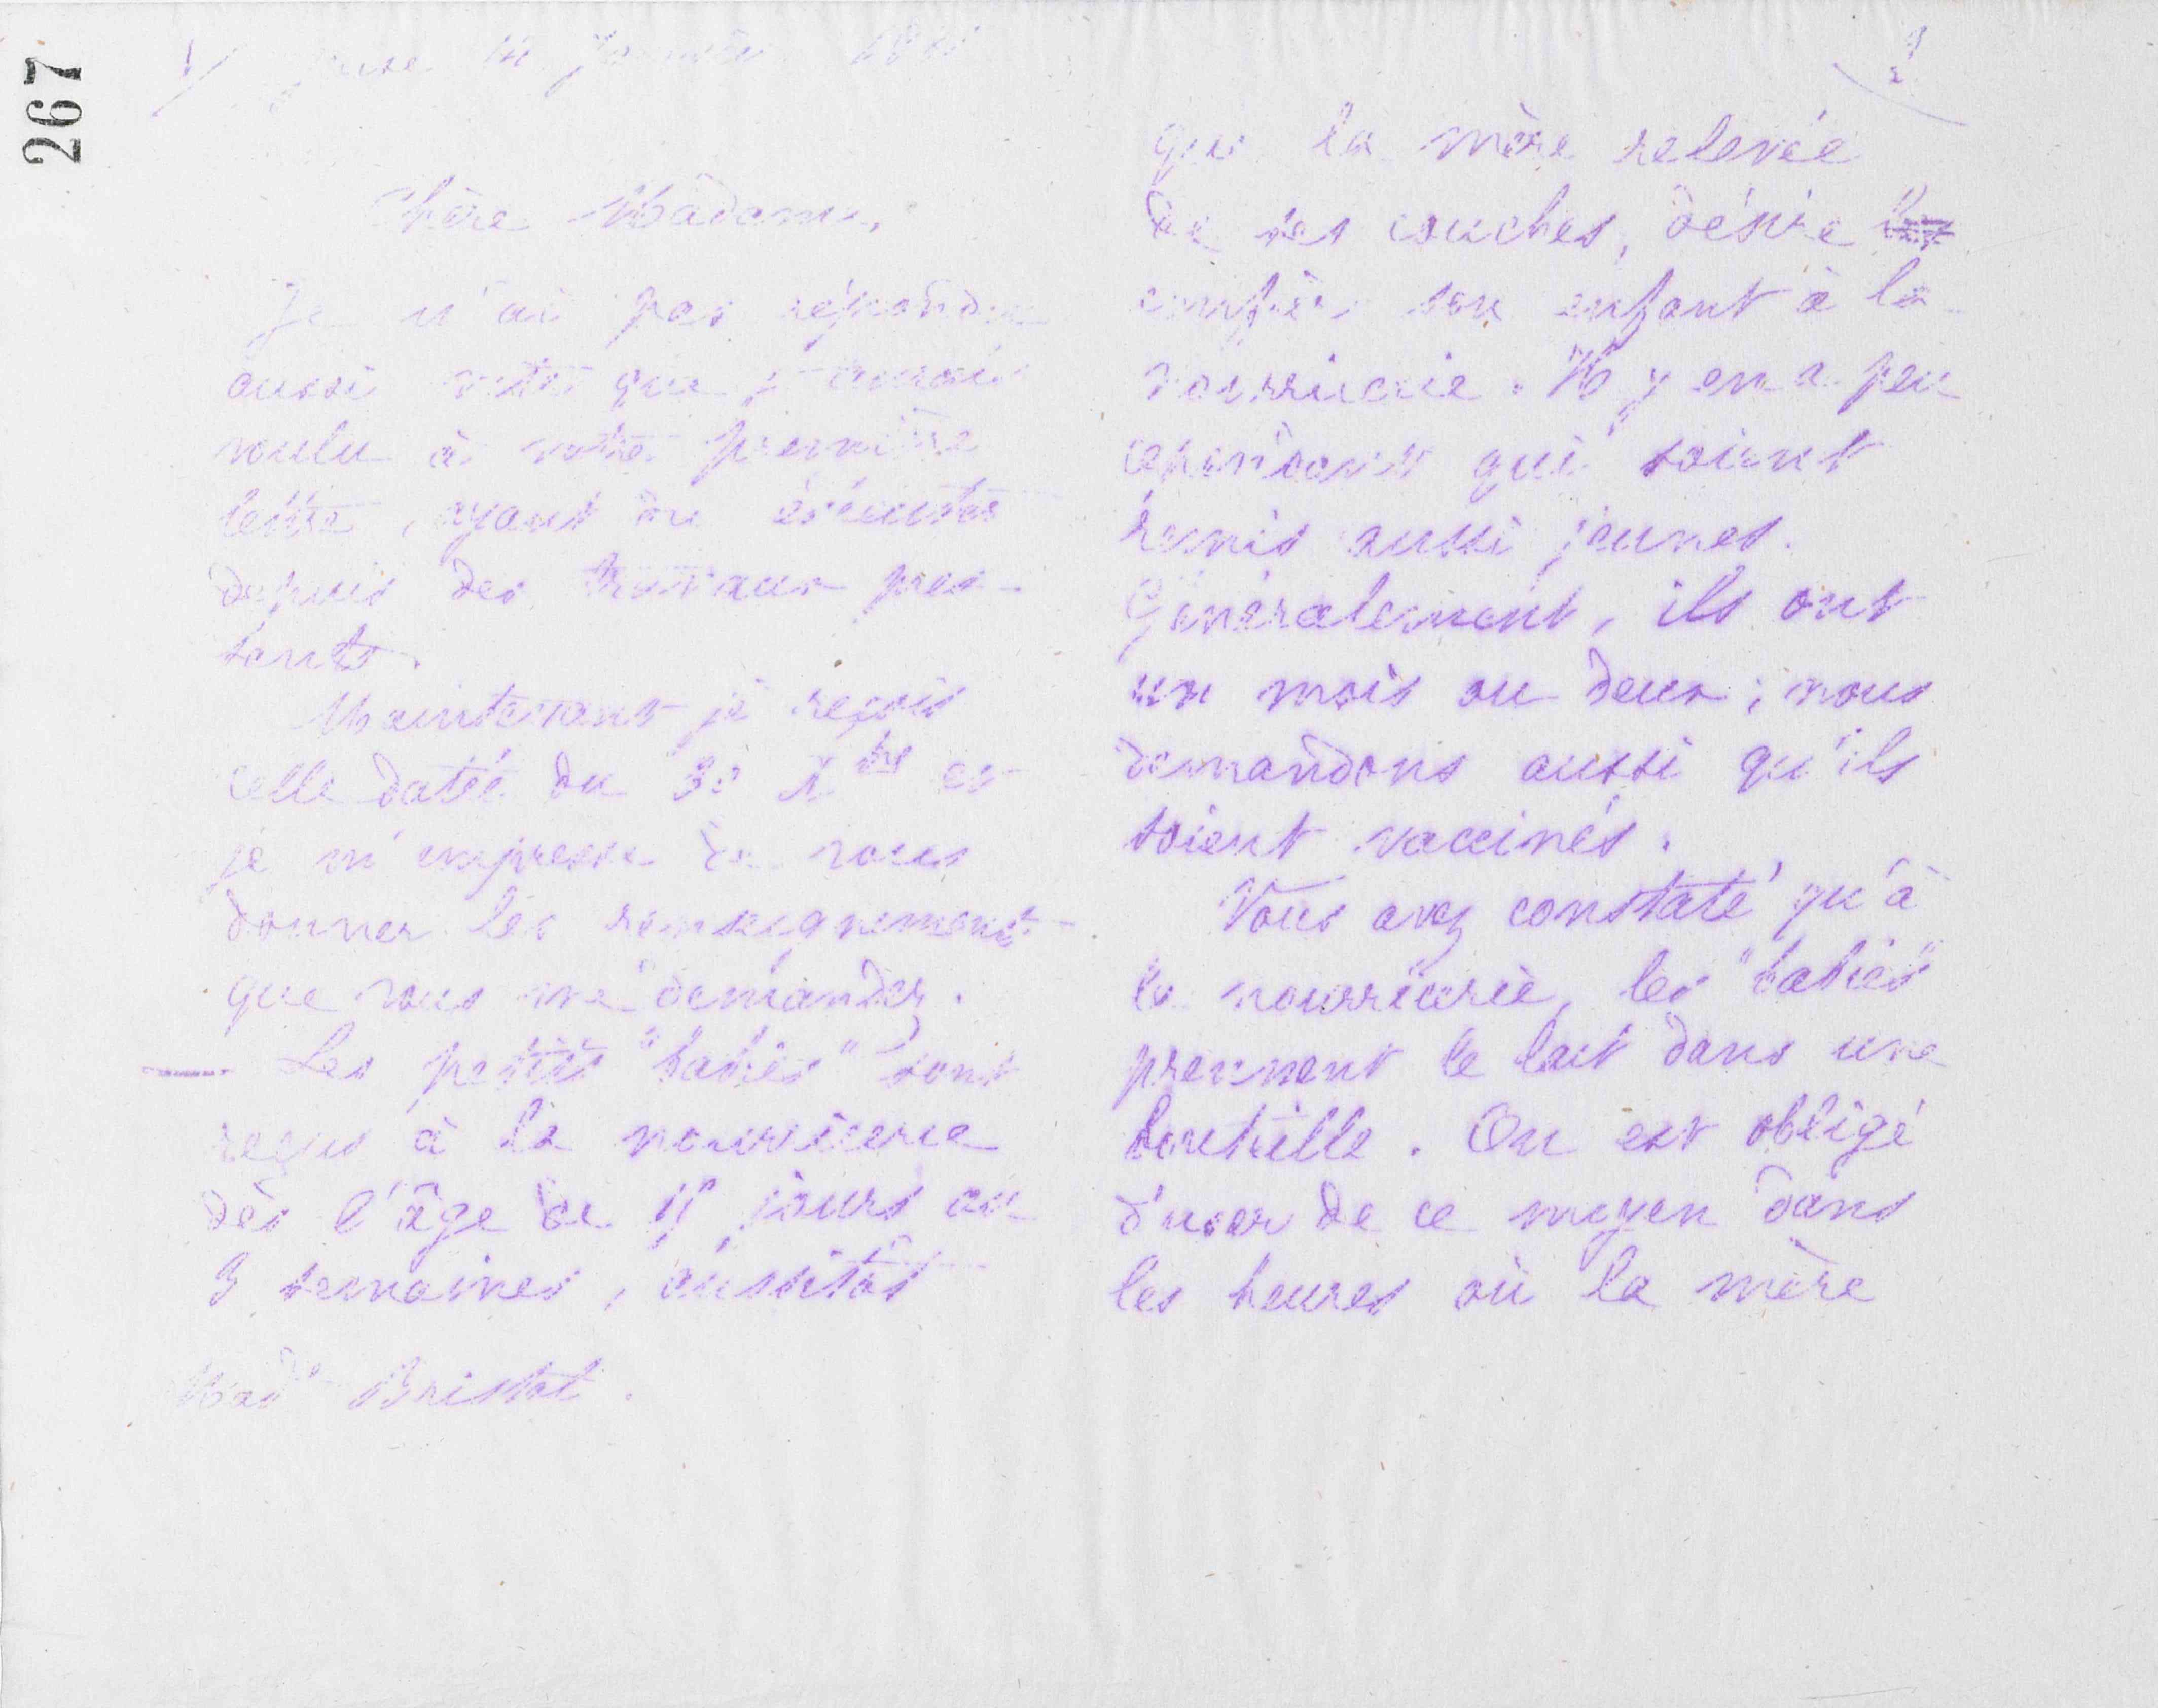 267
Guise 12 Janvier
Chère Madame,
Je n'ai pas répondu
aussi vite que j'aurais
voulu à votre première
lettre, ayant du éxécuter
depuis des travaux pres-
sants.
Maintenant je reçois
celle datée du 30 Xbre et
je m'empresse de vous
donner les renseignements
que vous me demandez.
— Les petits "babies" sont
reçus à la nourricerie
dès l'âge de 15 jours ou
3 semaines, aussitôt
Made Bristol.
2
que la mère relevée
de ses couches, désire
confier son enfant à la
nourricerie. Il y en a peu
cependant qui soient
remis aussi jeunes.
Généralement, ils ont
un mois ou deux ; nous
demandons aussi qu'ils
soient vaccinés.
Vous avez constaté qu'à
la nourricerie, les "babies"
prennent le lait dans une
bouteille. On est obligé
d'user de ce moyen dans
les heures où la mère